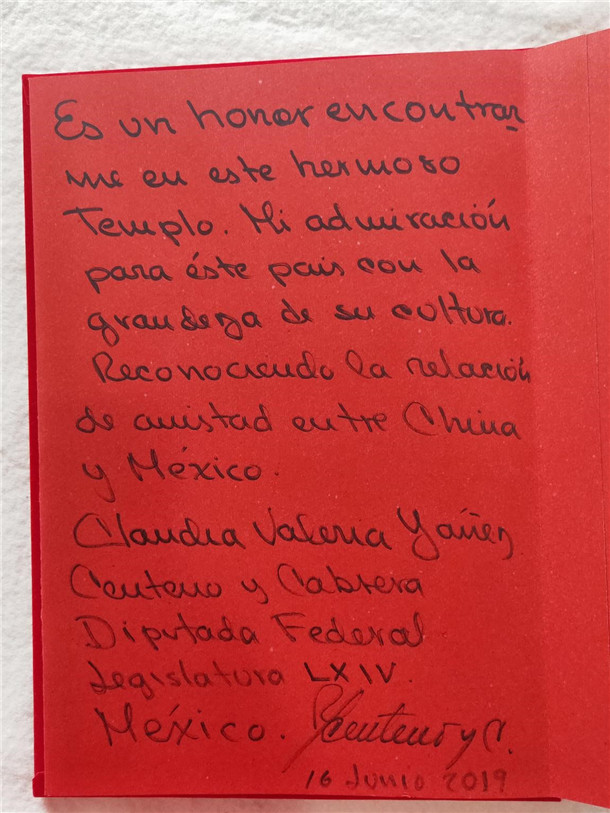 Es un honor encontrar
me en este hermoso
Templo. Mi admiración
para éste pais con la
grandeza de su cultura.
Reconociendo la relación
de amistad entre China
y México.
Claudia Valeria Yáñez
Centeno y Cabrera
Diputada Federal
Legislatura LXIV.
México. YCenteno y C.
16 Junio 2019